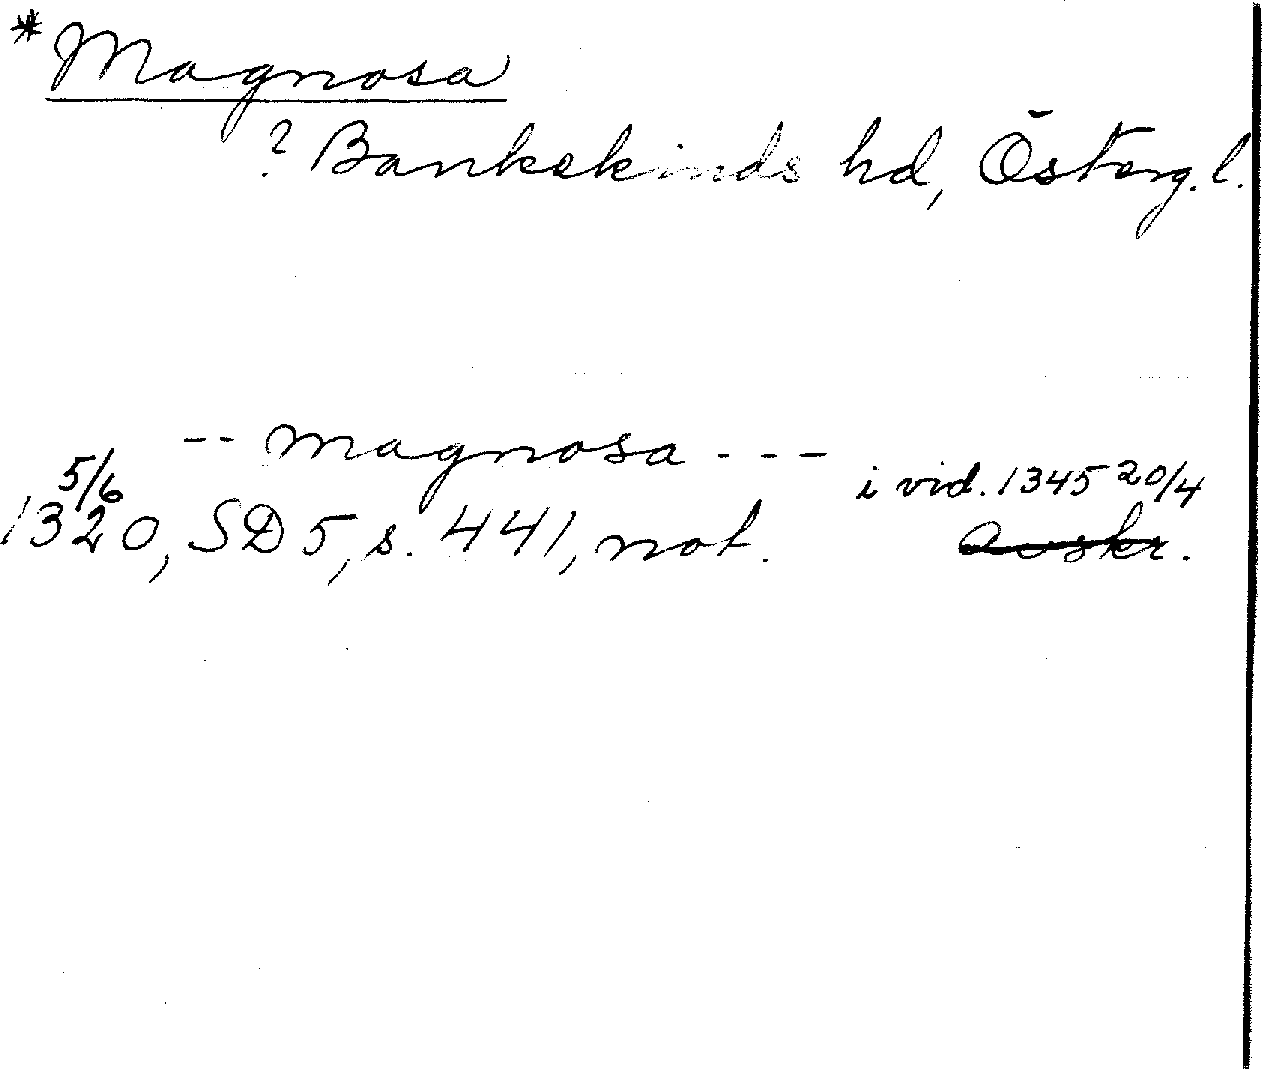 *Magnosa
? Bankekinds hd, Österg.l.
-- magnosa ---
5/6 i vid. 1345 20/4
1320, SD 5, s. 441, not. avskr.